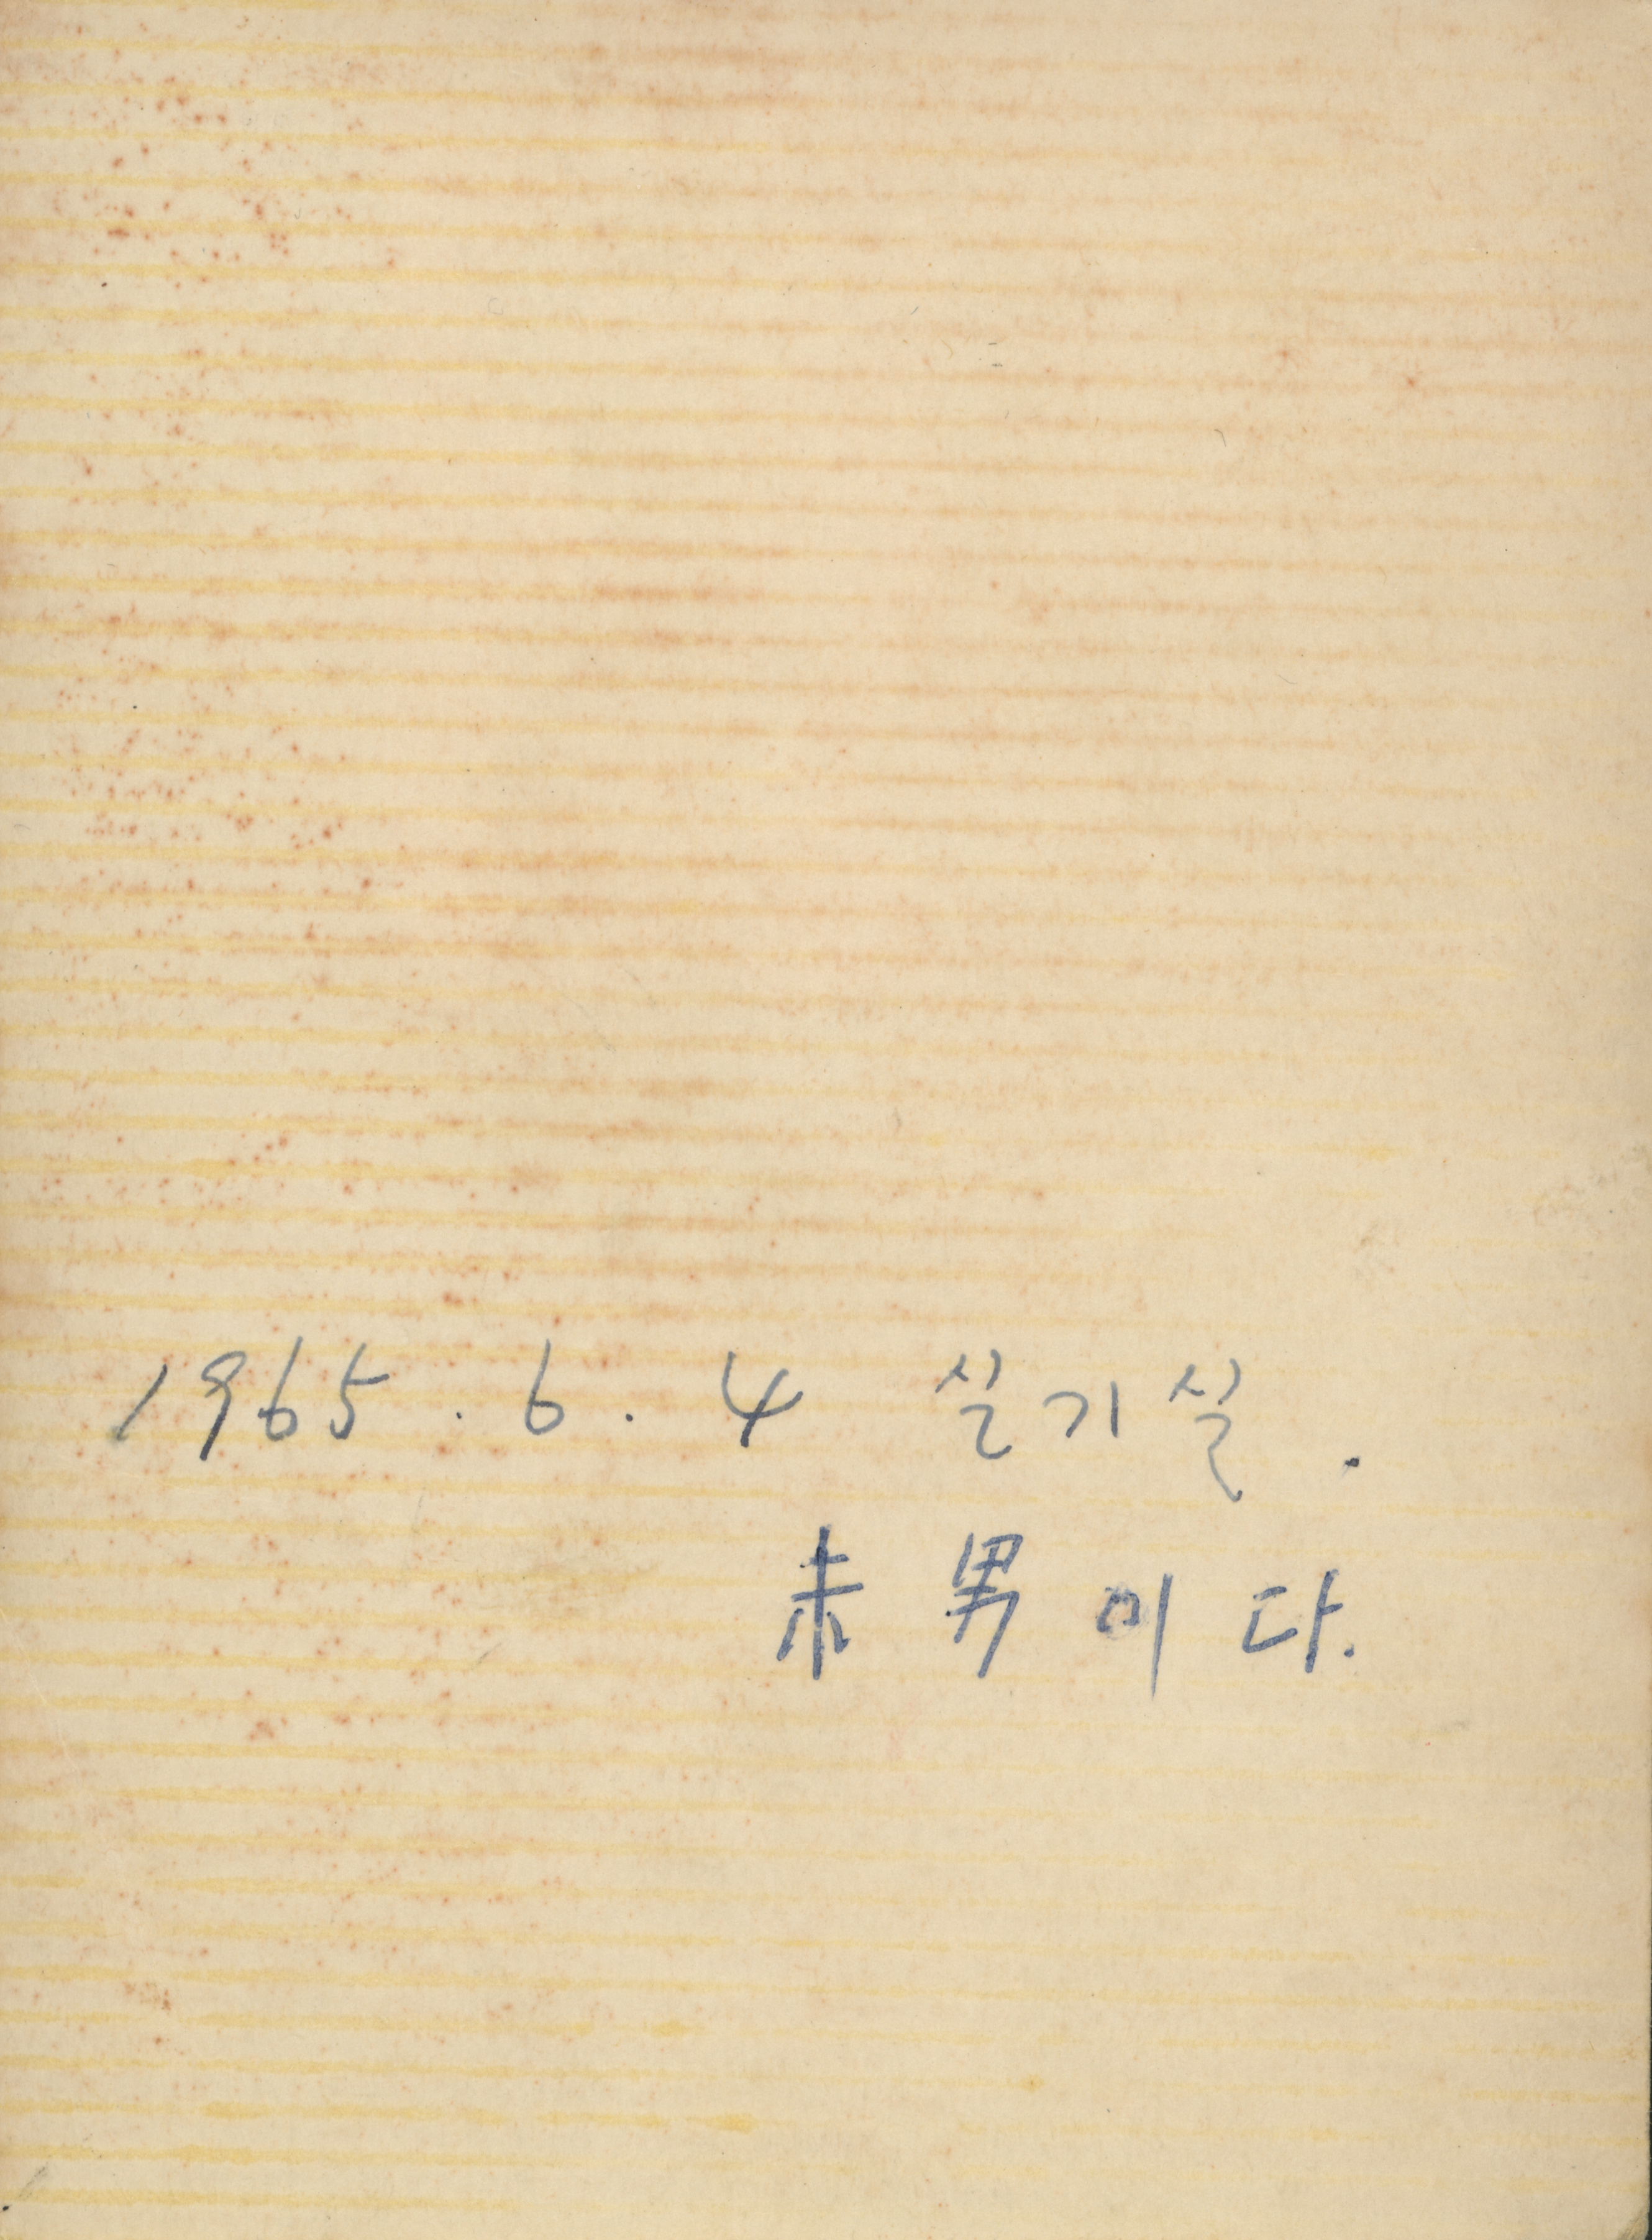 1965.6.4 실기실.
未男이다.